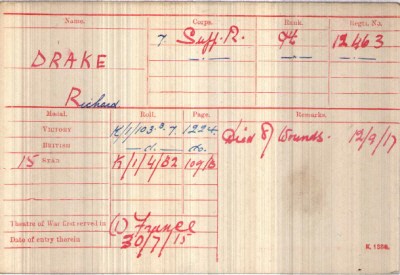 Name. Corps. Rank. Regtl. No.
DRAKE 7 Suff. R. Pte 12463
— " — — " — — " —
Richard
Medal. Roll. Page. Remarks.
VICTORY K/1/103.B.7. 1224. Died of Wounds. 12/9/17
BRITISH —do.— do.
15 STAR K/1/4/B2 109/B
Theatre of War first served in (1) France
Date of entry therein 30/7/15
K. 1380.